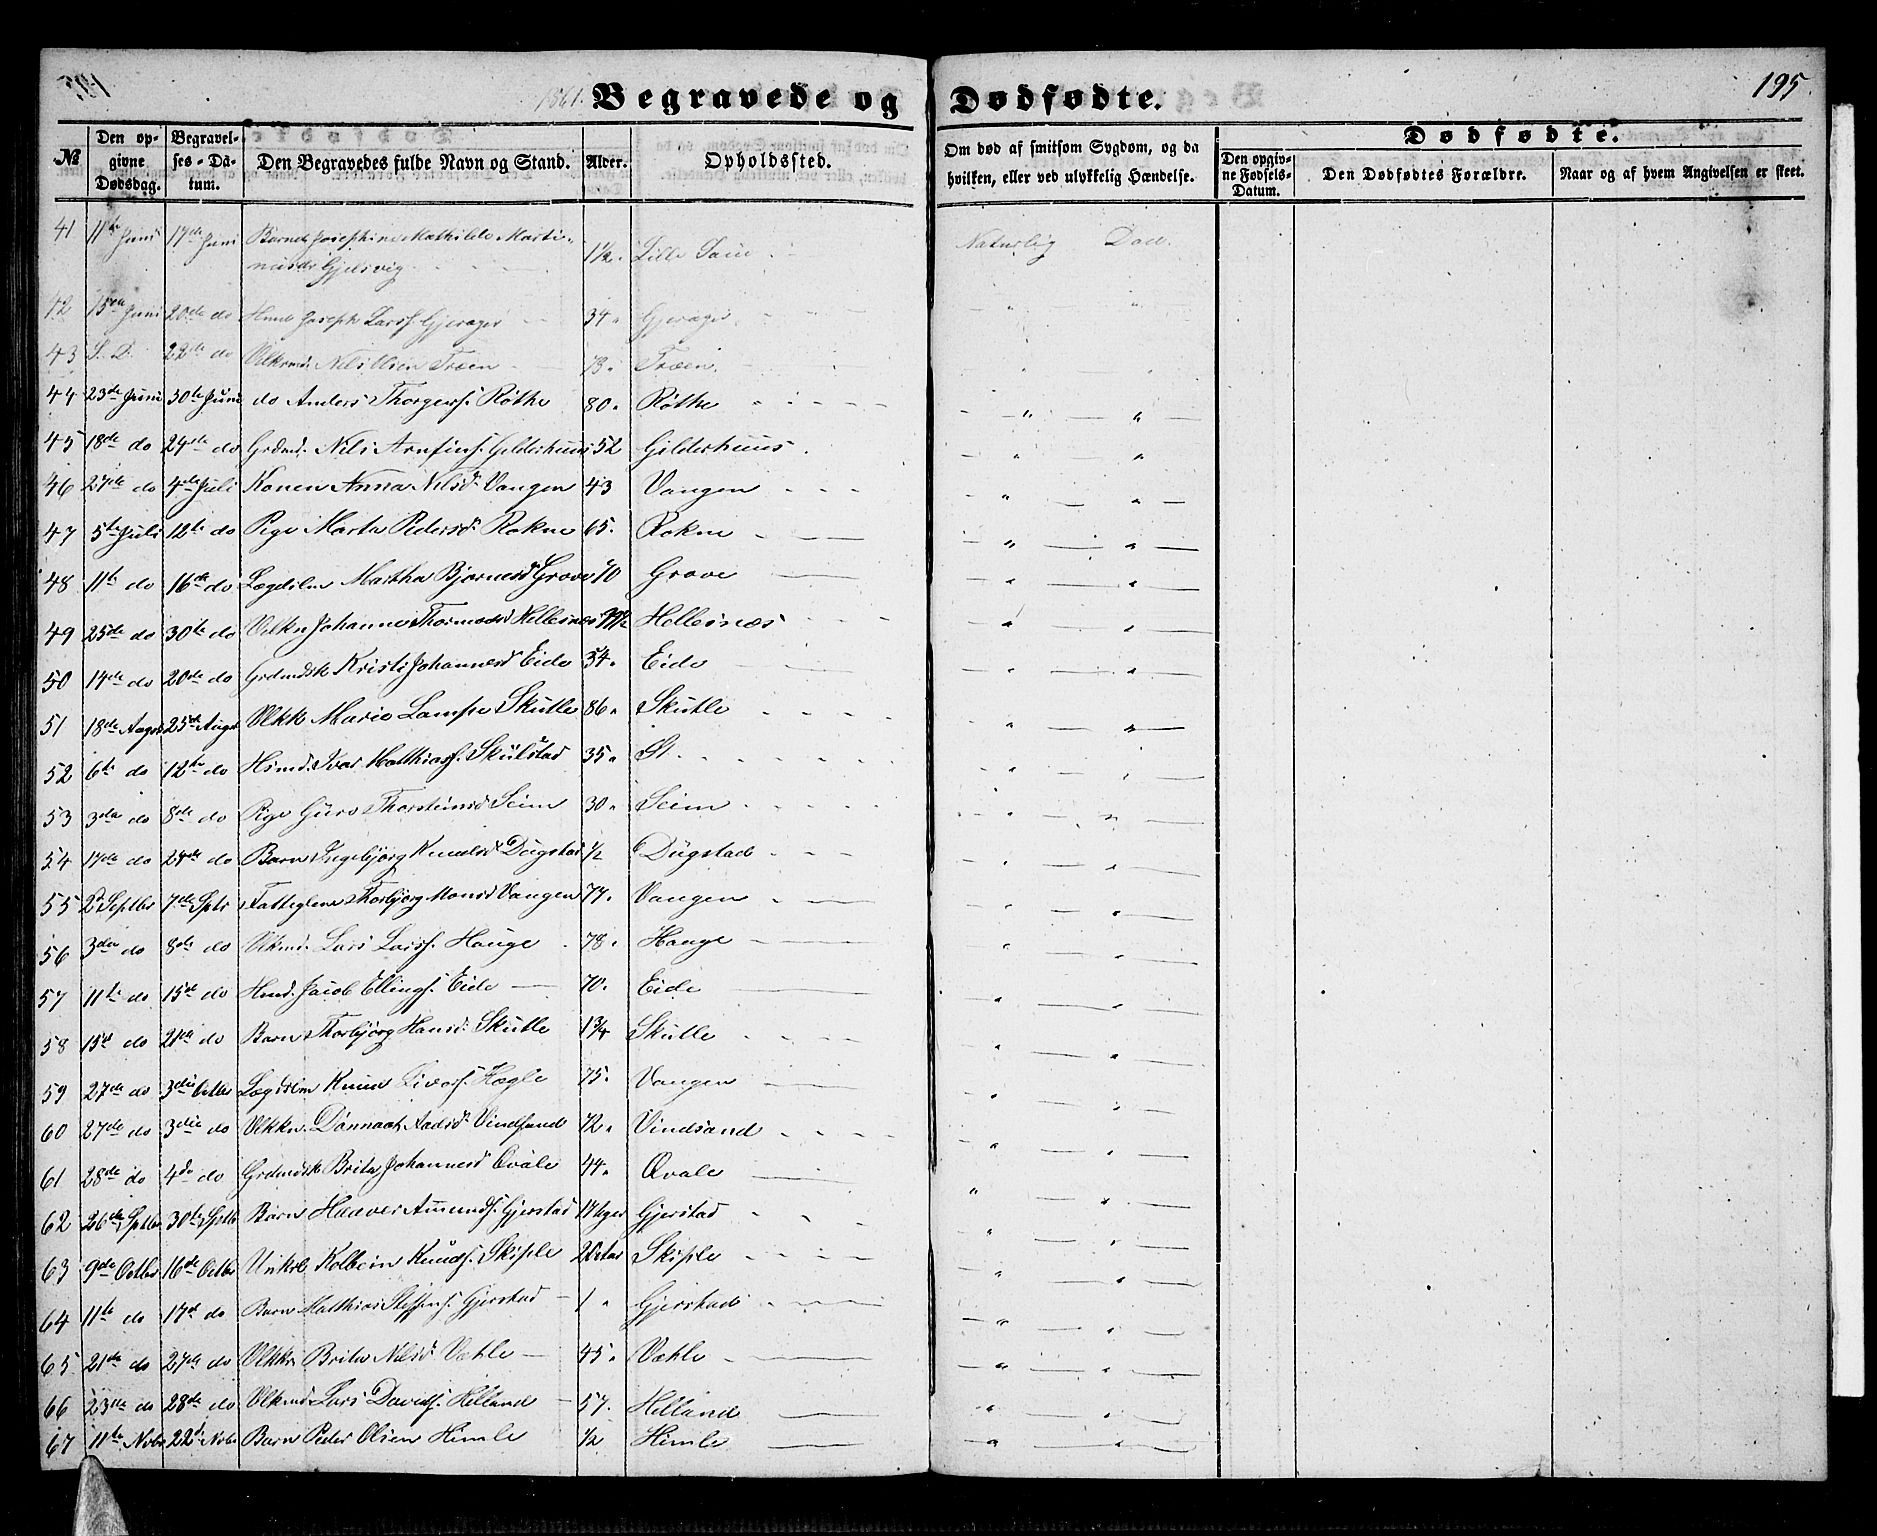 195
1861. Begravede og Dødfødte.
№ | Den opgivne Dødsdag. | Begravelses-Datum. | Den Begravedes fulde Navn og Stand. | Alder. | Opholdssted. | Om død af smitsom Sygdom, og da hvilken, eller ved ulykkelig Hændelse. | Dødfødte. | Den opgivne Fødsels-Datum. | Den Dødfødtes Forældre. | Naar og af hvem Angivelsen er skeet.
41 11te Juni 17de Juni Barnet Josephine Mathilde Marti-
nusdr Gjelsvig 1½. Lille Naturlig Død.
42 15de Juni 20de do Josephs Larss. Gjerager 34. Gjerager " "
43 S. D. 22de do Nils Olsen Træen 73. Træen. " "
44 23de Juni 30te Juni do Anders Thorgers. Røthe 80. Røthe " "
45 18de do 24de do Grdmd. Nils Arnfins. Gilderhuus 52 Gilderhuus " "
46 27de do 4de Juli Konen Anna Nilsd. Vangen 43 Vangen " "
47 5te Juli 12te do Pige Marta Pedersd. Rokne 65. Rokne " "
48 11te do 16de do Lægdslm Martha Bjørnesd Grove 70 Grove " "
49 25de do 30te do Johanne Hellesnæs Hellesnæs " "
50 14de do 20de do Grdmdsk Kristi Johannesd Eide 34. Eide " "
51 18de Augst 25de Augst Vlkk Marie Lampe Skutle 86. Skutle " "
52 6te do 12te do Hsmd. Ivar Matthiass. Skulstad 35. St. " "
53 3die do 8de do Pige Guro Thorsteinsd Seim 30. Seim " "
54 17de do 24de do Barn Ingebjørg Knudsd Dugstad ½ Dugstad " "
55 2d Septbr 7de Sptr Fatteglem Thorbjørg Monsd Vangen 77. Vangen " "
56 3die do 8de do Vlkmd. Lars Larss. Hauge 78. Hauge " "
57 11te do 15de do Hmd. Jacob Ellings. Eide 70. Eide " "
58 15de do 21de do Barn Thorbjørg Hansd. Skutle 1¾ Skutle " "
59 27de do 3die Octbr Lægdslm Knud Ivars. Hægle 75. Vangen " "
60 27de do 3die do Vlkkn. Vindsand 72. Vindsand " "
61 28de do 4de do Grdmdsk Brita Johannesd Qvale 44. Qvale " "
62 26de Sptbr 30te Sptb Barn Haaver Amunds. Gjerstad Gjerstad " "
63 9de Octbr 16de Octbr Unkrl Kolbein Knuds. Skiple Skiple " "
64 11te do 17de do Barn Matthias Steffens. Gjerstad 1. Gjerstad " "
65 21de do 27de do Vlkkn Brita Nilsd. Væthle 45. Væhle " "
66 23de do 28de do Vlkmd Lars Davids. Helland 57. Helland " "
67 11te Nvbr 22d Nvbr Barn Peder Olsen Himle ½ Himle " "